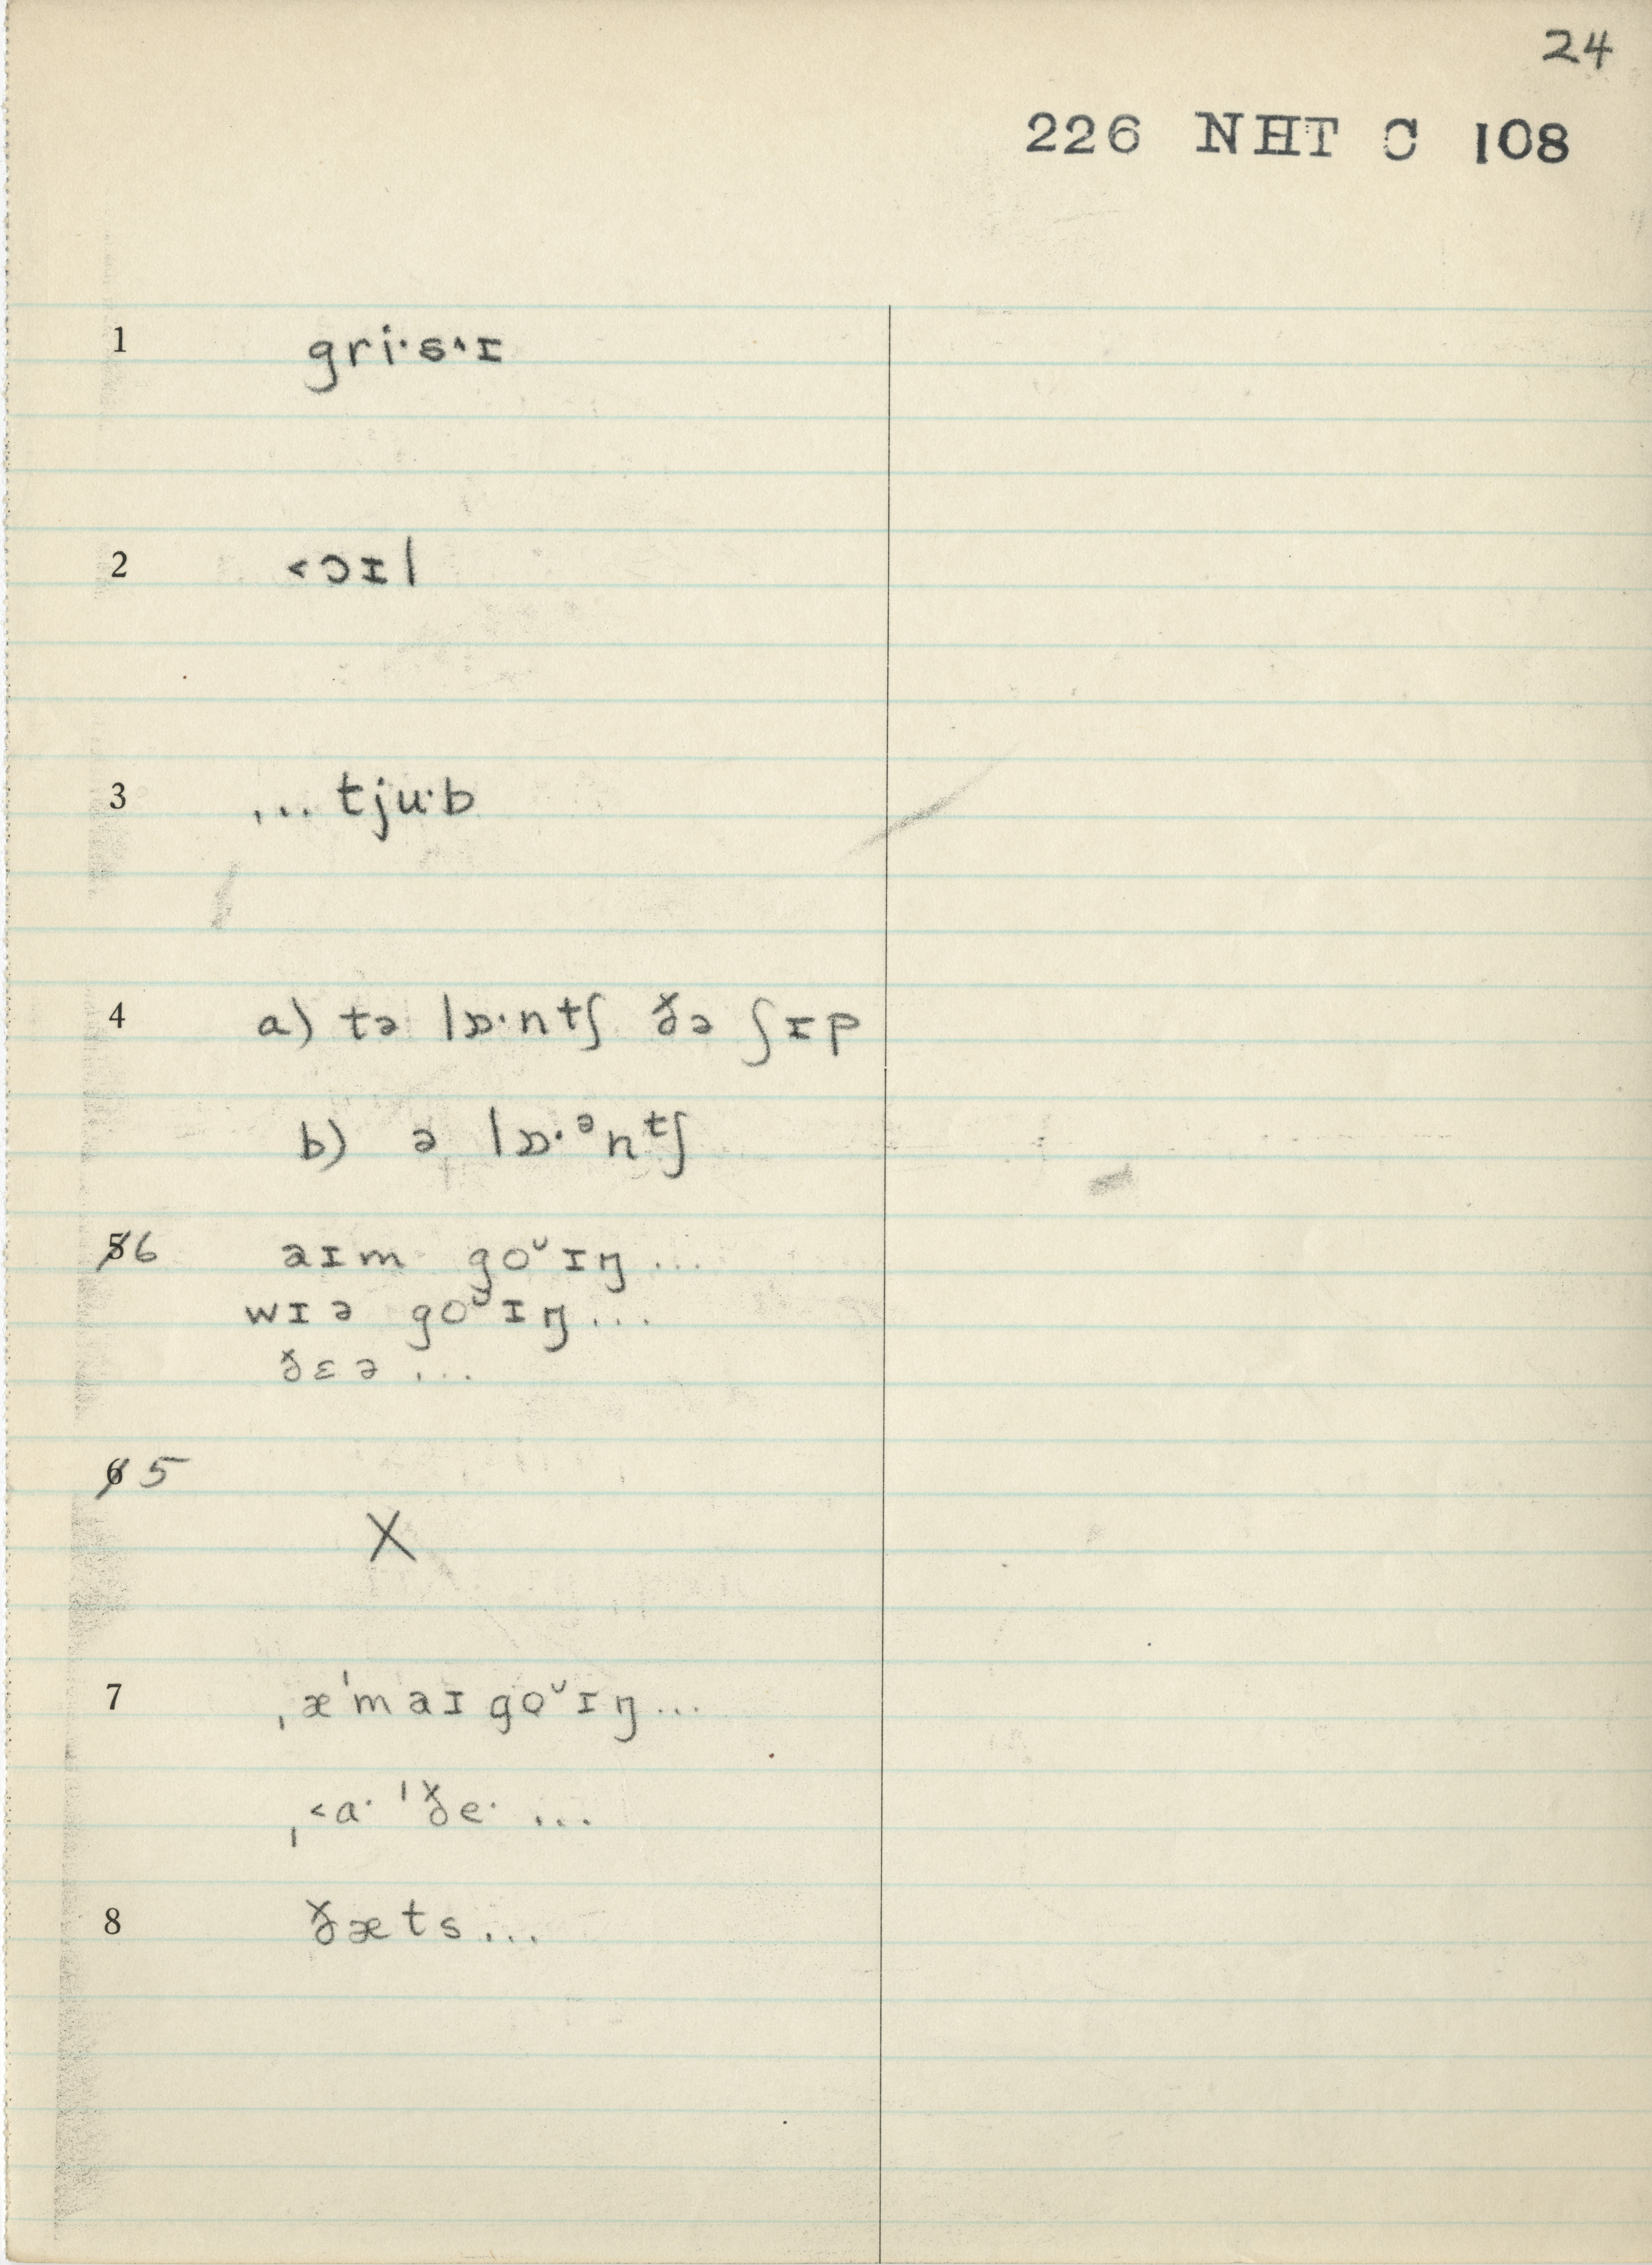 24
226 NHT C 108
1 gri·s˄ɪ
2 <ɔɪl
3 ... tju·b
4 a) tə lɒ·ntʃ ðə ʃɪp
b) ə lɒ·ᵊnᵗʃ
5̸6 aɪm goᵕɪŋ ...
wɪə goᵕɪŋ ...
ðɛə ...
6̸ 5
X
7 ˌæˈmaɪ goᵕɪŋ ...
ˌ<a· ˈðe· ...
8 ðæts ...